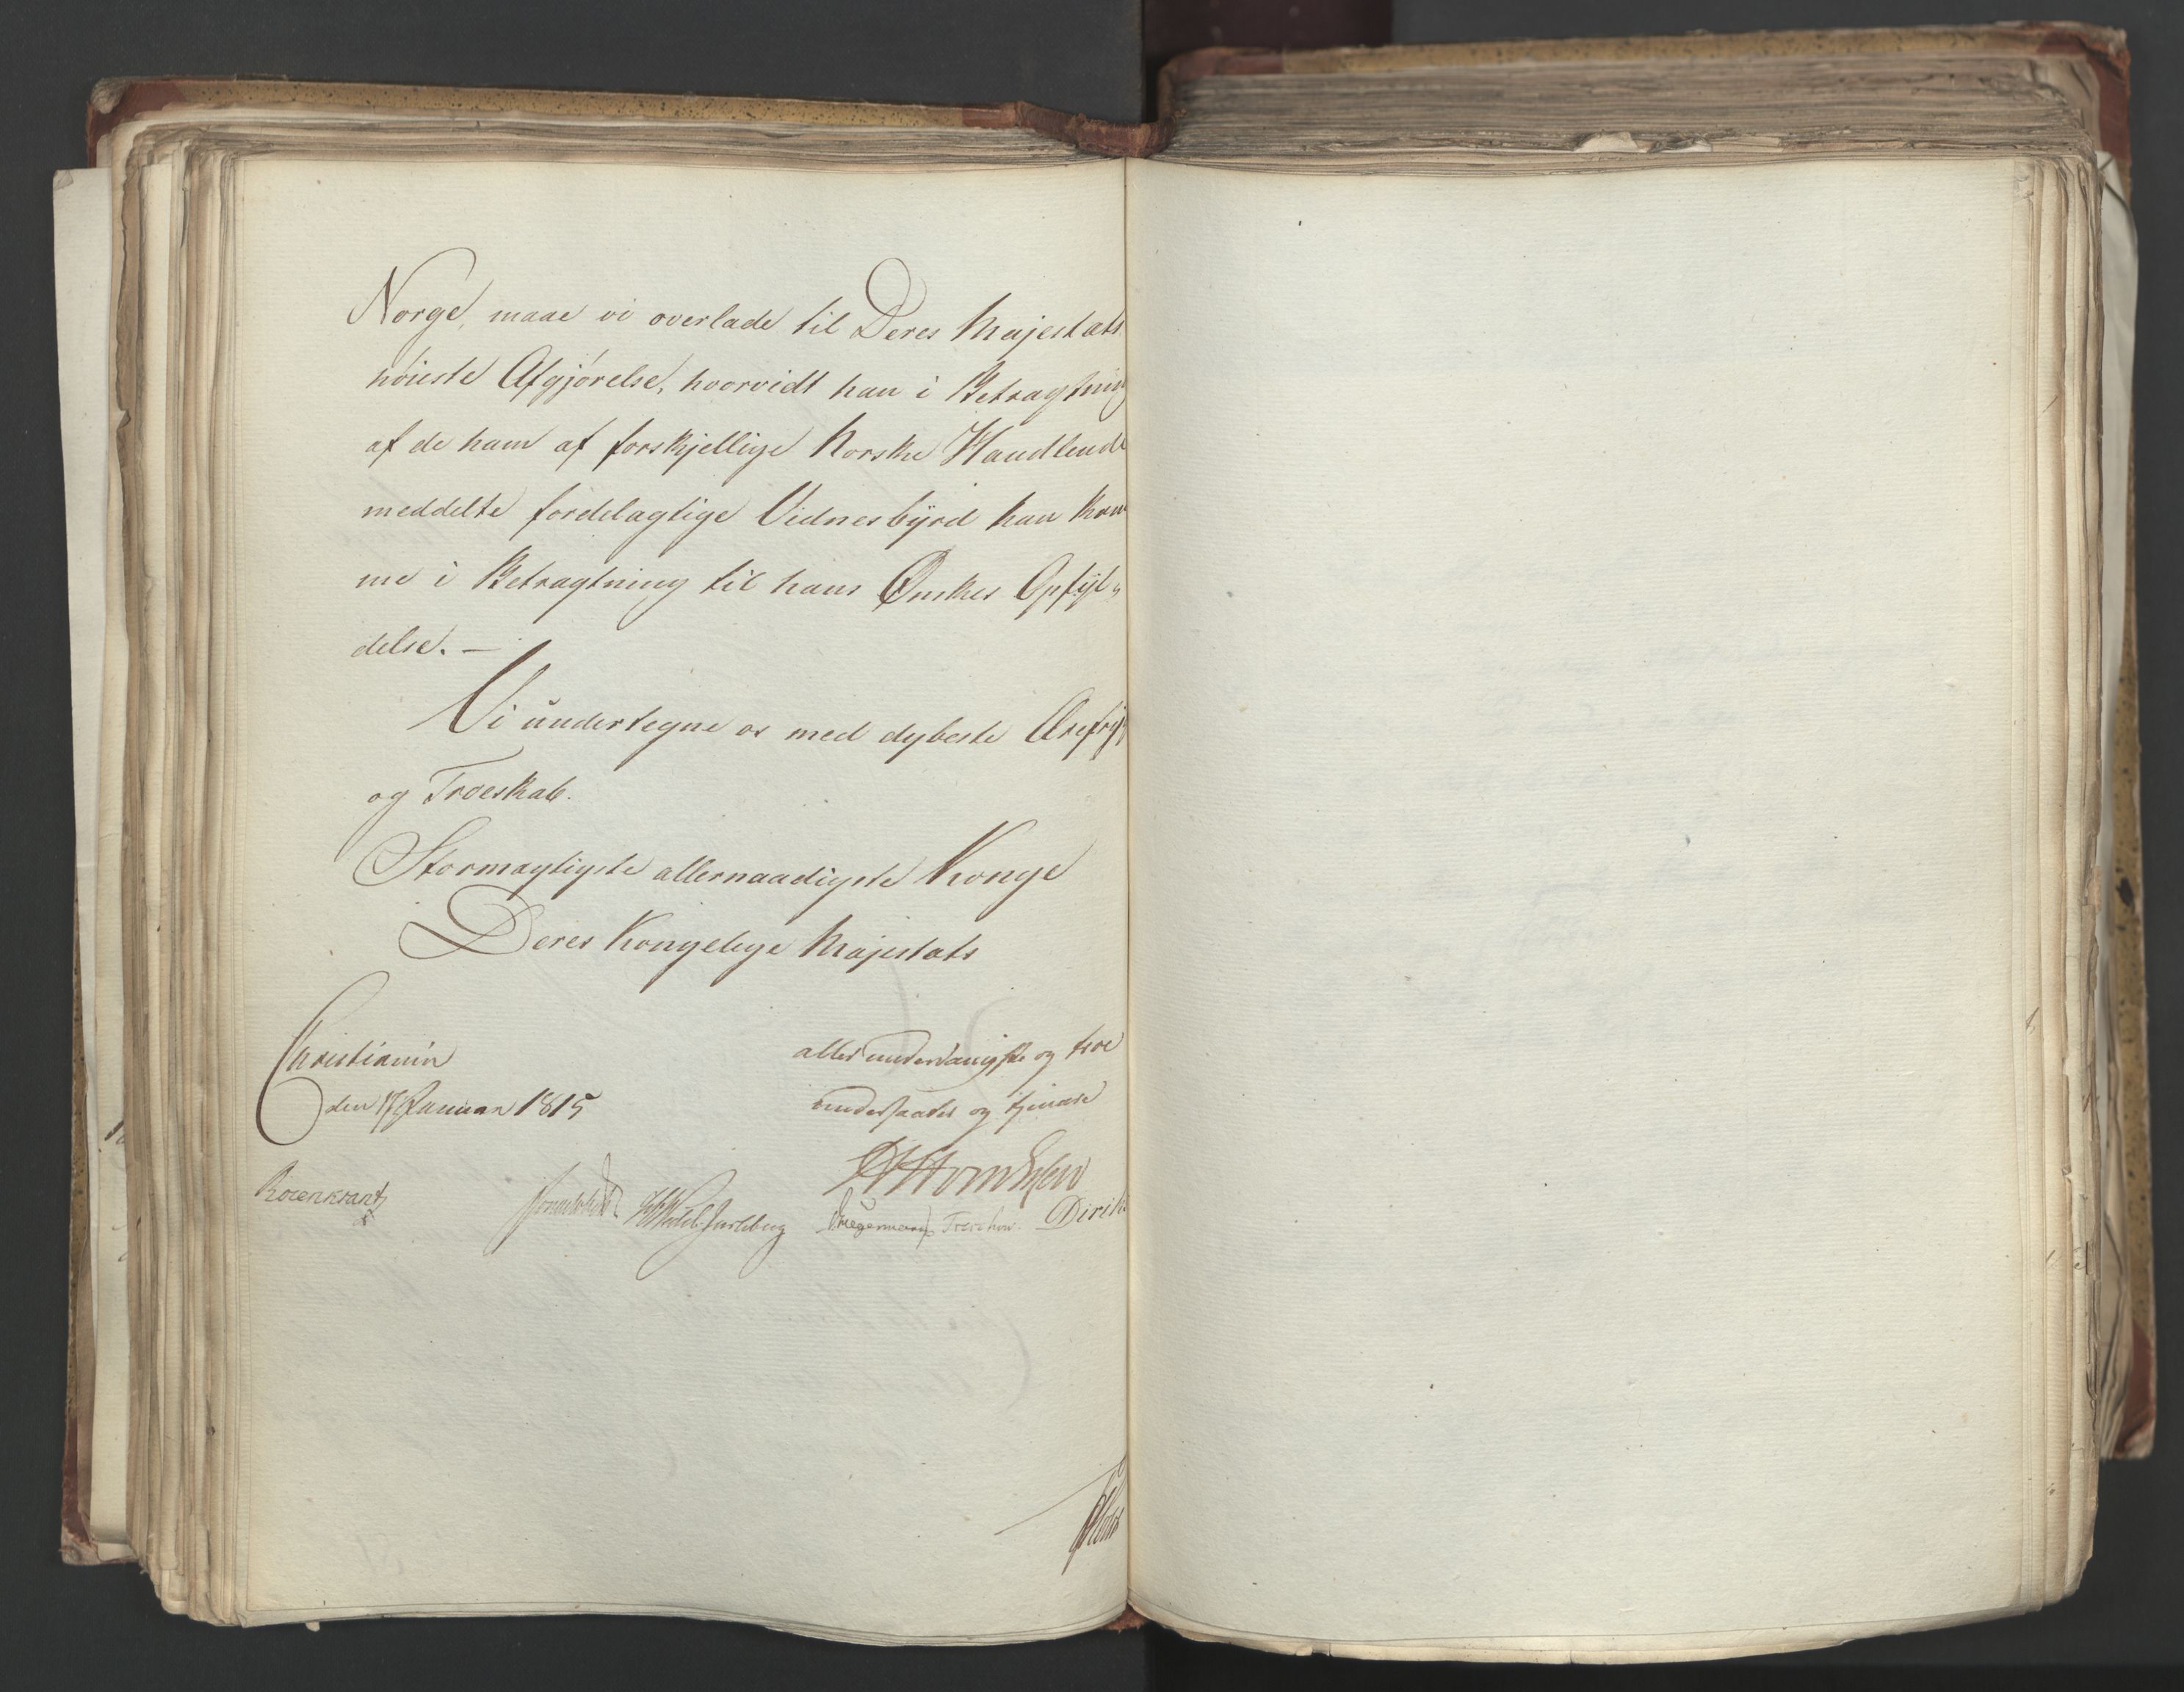 Norge, maae vi overlade til Deres Majestæts
höieste Afgjørelse, hvorvidt han i Betragtning
af de ham af forskjellige Norske Handlende
meddelte fordelagtige Vidnesbÿrd kan kom
me i Betragtning til hans Ønskes Opfÿl„
delse. —
Vi undertegne os med dybeste Ærefrygt
og Troeskab.
Stormægtigste allernaadigste Konge
Deres Kongelige Majestæts
Christiania allerunderdanigste og troe
den 17 Januar 1815 undersaatter og tjenere
Rosenkrantz Sommerhielm HWedel-Jarlsberg Kriegermann Treschow. Dirik